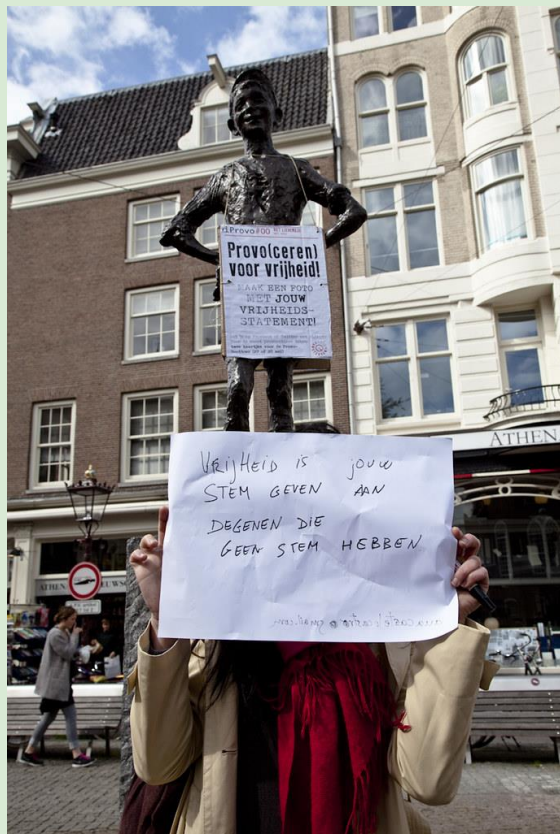 iProvo
Provo(ceren)
voor vrijheid!
MAAK EEN FOTO
MET JOUW
VRIJHEIDS-
STATEMENT!
VRIJHEID IS JOUW
STEM GEVEN AAN
DEGENEN DIE
GEEN STEM HEBBEN
ATHEN